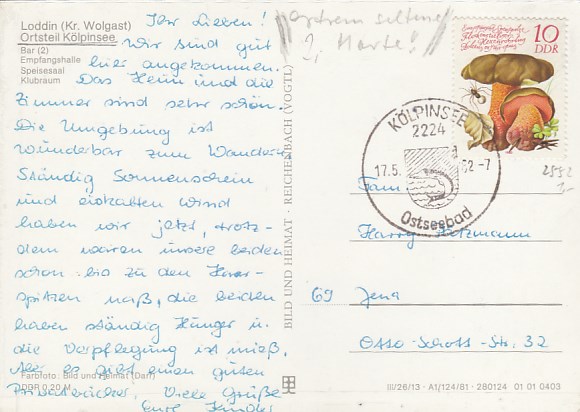 Loddin (Kr. Wolgast)
Ortsteil Kölpinsee
Bar (2)
Empfangshalle
Speisesaal
Klubraum
Ihr Lieben!
Wir sind gut
hier angekommen.
Das Heim und die
Zimmer sind sehr schön.
Die Umgebung ist
wunderbar zum Wandern.
Ständig Sonnenschein
und eiskalten Wind
haben wir jetzt, trotz-
dem waren unsere beiden
schon bis zu den Haar-
spitzen naß, die beiden
haben ständig Hunger u.
die Verpflegung ist mieß.
Aber es gibt einen guten
Privatbäcker. Viele Grüße
Farbfoto: Bild und Heimat (Darr)
DDR 0,20 M
BILD UND HEIMAT · REICHENBACH (VOGTL)
extrem seltene
Marke!
10
DDR
KÖLPINSEE
2224
17.5. 82-7
Ostseebad
2552
Fam.
Harry
69 Jena
Otto-Schott-Str. 32
III/26/13 · A1/124/81 · 280124 01 01 0403